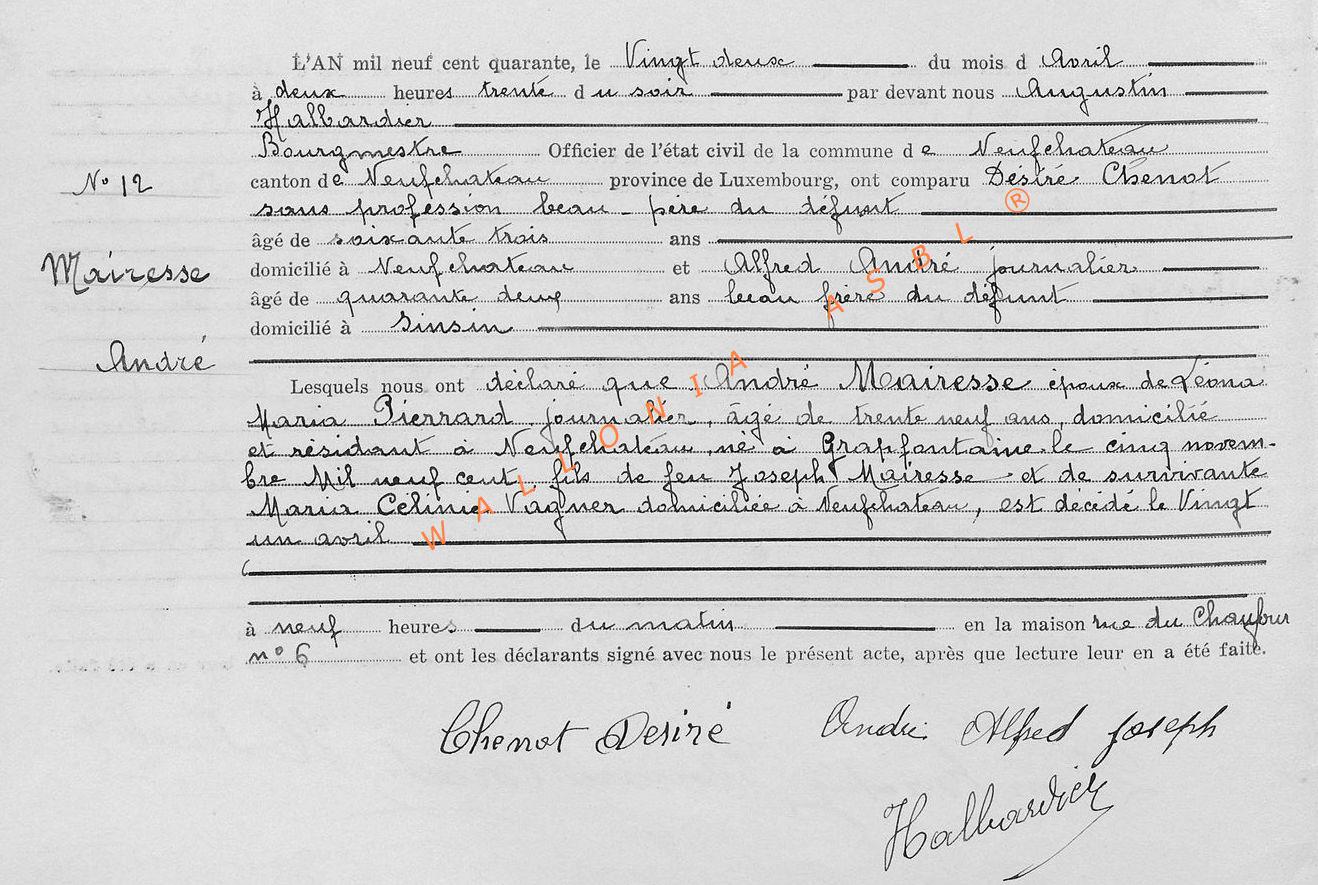 L'AN mil neuf cent quarante, le Vingt deux du mois d Avril
à deux heures trente du soir par devant nous Augustin
Halbardier
Bourgmestre Officier de l'état civil de la commune de Neufchateau
N° 12
canton de Neufchateau province de Luxembourg, ont comparu Désiré Chenot
sans profession beau-père du défunt
âgé de soixante trois ans
Mairesse
domicilié à Neufchateau et Alfred André journalier
âgé de quarante deux ans beau frère du défunt
domicilié à Sinsin
André
Lesquels nous ont déclaré que André Mairesse époux de Léona
Maria Pierrard journalier, âgé de trente neuf ans, domicilié
et résidant à Neufchateau, né à Grapfontaine le cinq novem-
bre Mil neuf cent, fils de feu Joseph Mairesse et de survivante
Maria Célinie Vagner domiciliée à Neufchateau, est décédé le Vingt
un avril
à neuf heures du matin en la maison rue du Chaufour
n° 6 et ont les déclarants signé avec nous le présent acte, après que lecture leur en a été faite.
Chenot Desiré André Alfred Joseph
Halbardier
WALLONIA ASBL ®